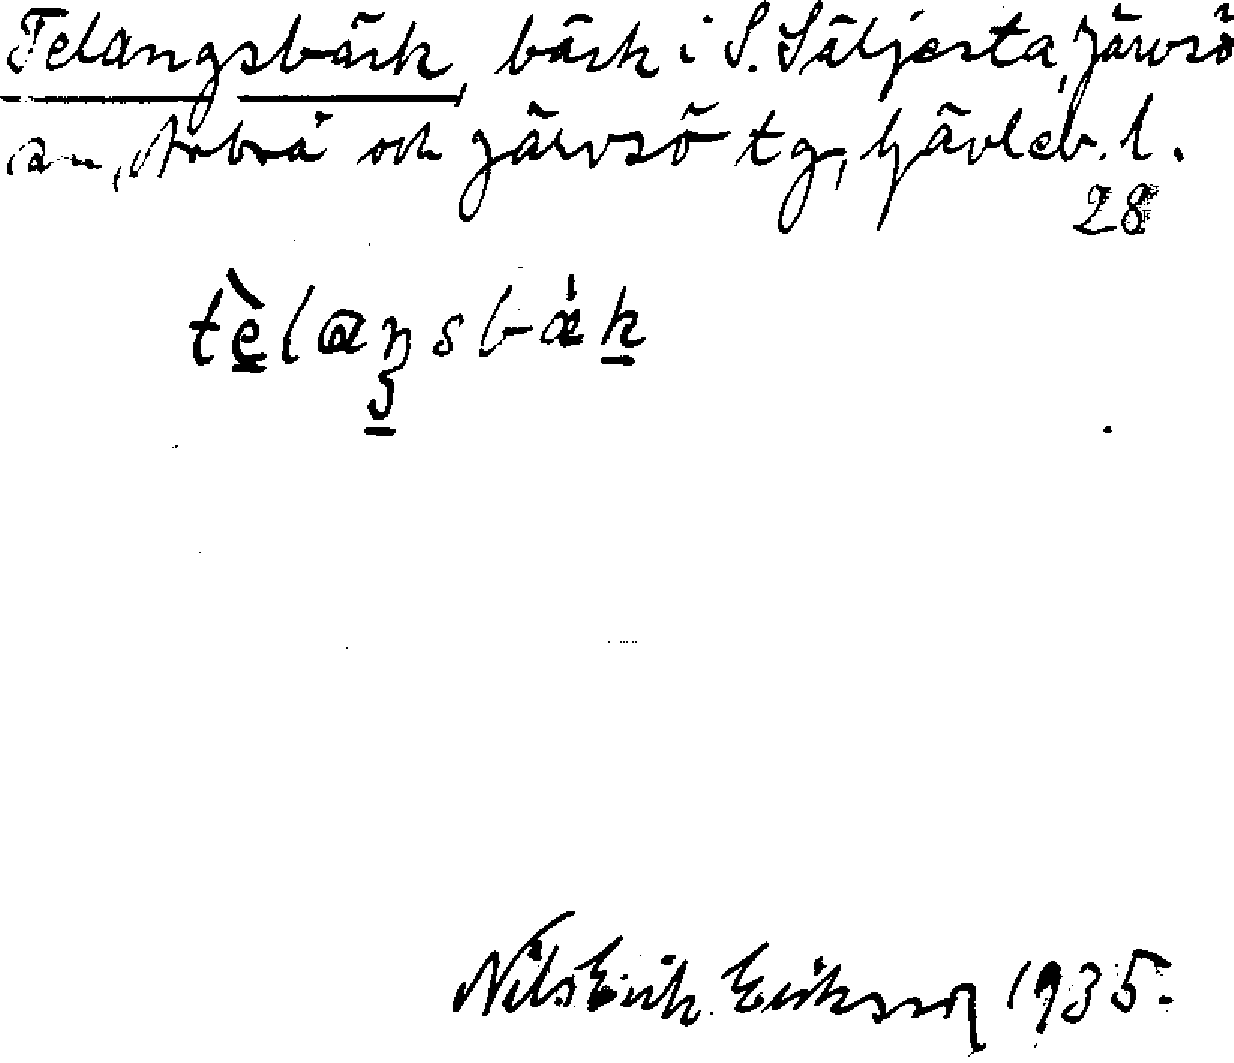 Telangsbäck, bäck i S. Säljesta, Järvsö
sn, Arbrå och Järvsö tg, Gävleb. l.
28
tèlaŋsbäk
Nils Erik Eriksson 1935.